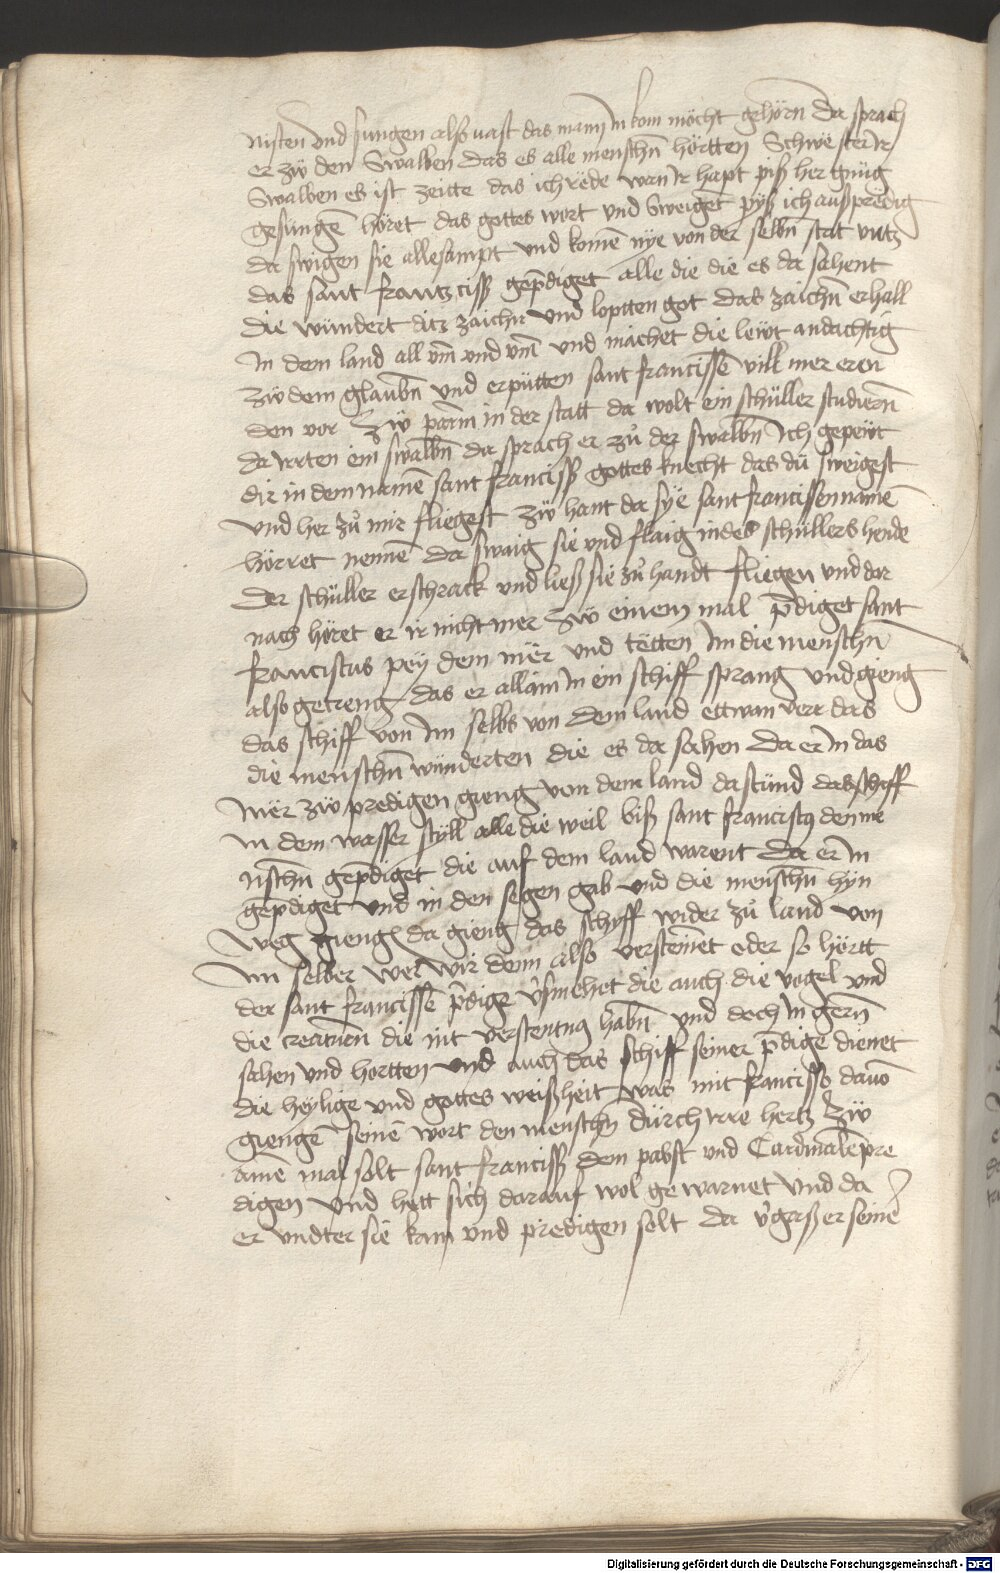 nisten vnd sungen also uast das man in kom möcht gehörn Da sprach
er zw̎ den Swalben das es alle menschn̄ hörtten Schwestern Ir
Swalben es ist zeitte das ich rede wan Ir hapt piß her gnüg
gesüngē höret das gottes wort vnd sweiget pyß ich außpredig
da swigen sie allesampt vnd komē nÿe von der selbn̄ stat vntz
das sant frantzciss gepdiget alle die die es da sahent
die wündert ditz zaichn̄ vnd loptten got das zaichn̄ erhall
In dem land all vm̄ vnd vm̄ vnd machet die lewt andächtig
zw̎ dem glaubn̄ vnd erpütten sant francissē vill mer eren
den vor Zw̎ parm in der statt da wolt ein schüller studiern̄
da Irten ein swalbn̄ da sprach er zů der swalbn̄ Ich gepewt
dir in dem namē sant franciss gottes knecht das dü sweigest
vnd her zů mir fliegest zw̎ hant da sÿe sant francissen namē
hörret nennē da swaig sie vnd flaig in des schüllers hende
der schüller erschrack vnd ließ sie zů handt fliegen vnd dar
nach höret er ir nicht mer Zw̎ einem mal p̄diget sant
franciscus peÿ dem mër vnd tëtten Im die menschn̄
also getreng das er allain In ein schiff sprang vnd gieng
das schiff von Im selbs von dem land ettwan verr das
die menschn̄ wünderten die es da sahen Da er In das
mër zw̎ predigen gieng von dem land da stünd das schiff
In dem wasser styll alle die weil biß sant franciscꝯ den me
nschn̄ gep̄diget die auf dem land warent Da er In
gep̄diget vnd in den segen gab vnd die menschn̄ hÿn
weg gieng da gieng das schÿff wider zů land von
Im selber wer wir denn also versteinet oder so hörtt
der sant francissē p̄dige v̄smehet die auch die vogel vnd
die creatürn̄ die nit verstentnꝯ habn̄ vnd doch In gern̄
sahen vnd hortten vnd auch das schiff seiner p̄dige dienet
die heÿlige vnd gottes weißheit was mit francisso dauō
giengē seinē wort den menschn̄ dürch irre hertz Zw̎
ainē mal solt sant franciss dem pabst vnd Cardinalē pre
digen vnd hett sich darauf wol gewarnet vnd da
er vndter sie kam vnd predigen solt da v̄gaß er seinē
Digitalisierung gefördert durch die Deutsche Forschungsgemeinschaft - DFG